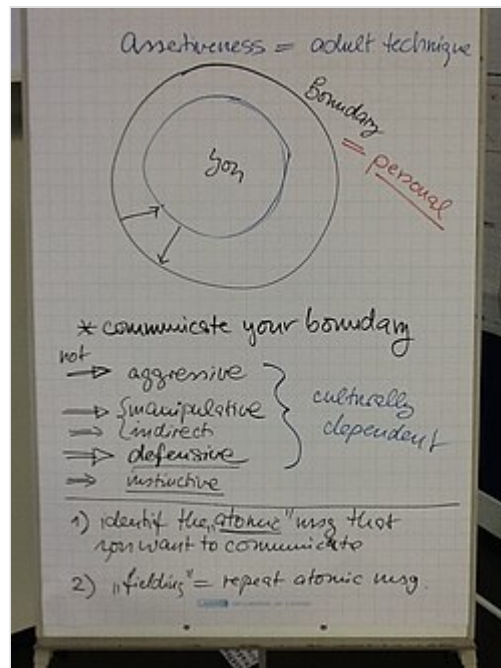 Assertiveness = adult technique
Boundary
= personal
you
* communicate your boundary
not
⇒ aggressive
⇒ {manipulative
⇒ {indirect
⇒ defensive
⇒ instinctive
culturally
dependent
1) identif the „atomic" msg that
you want to communicate
2) „fielding" = repeat atomic msg.